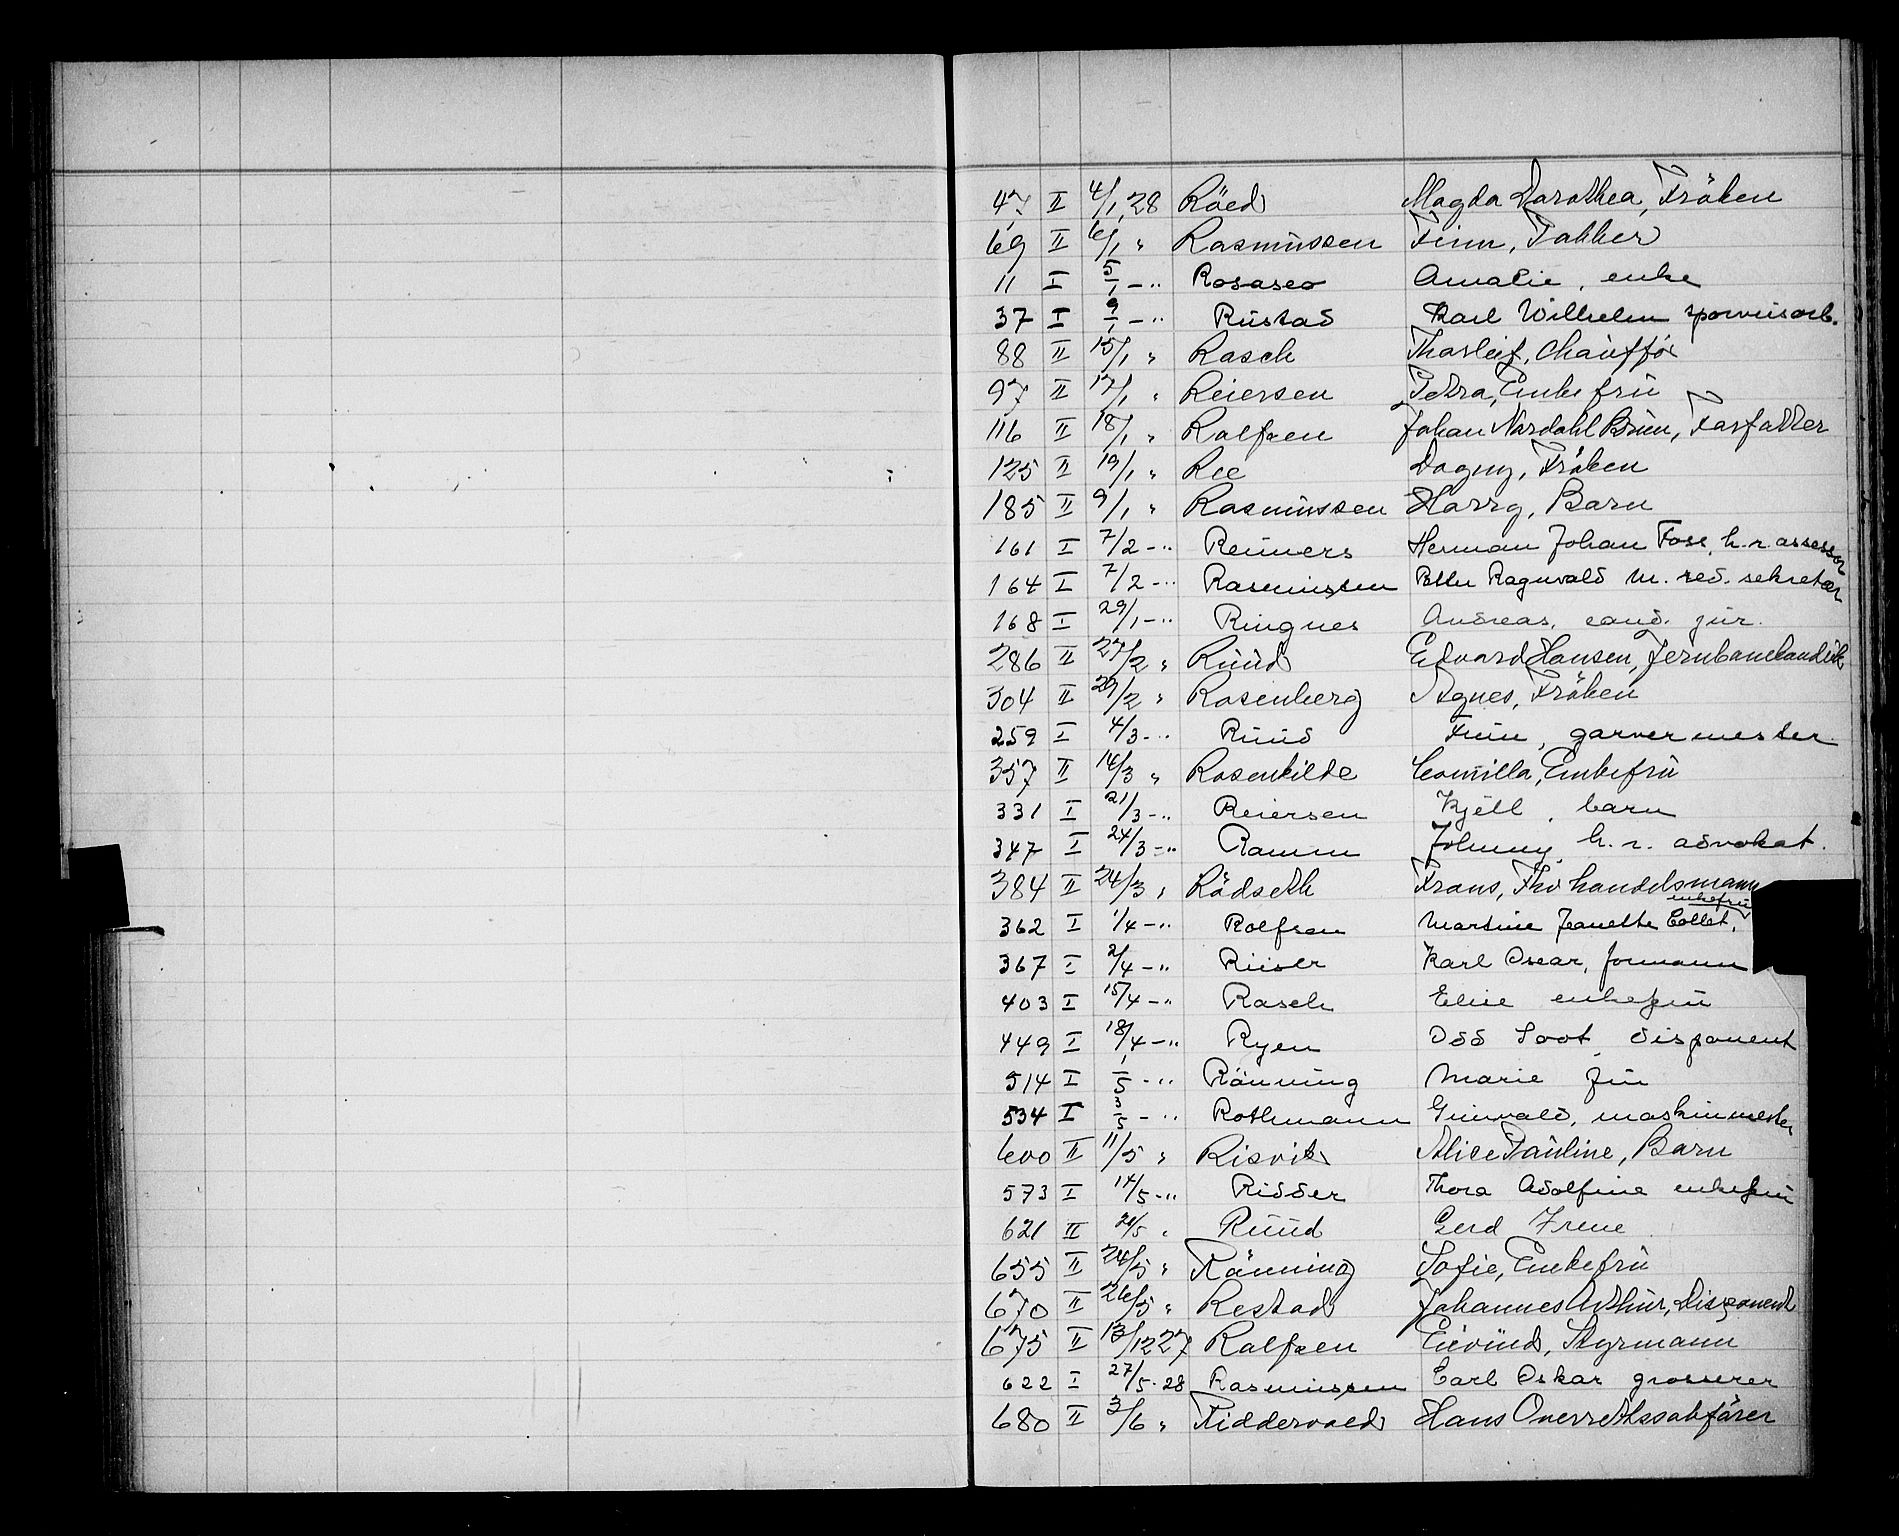 47 II 4/1 28 Röed Magda Dorothea, Fröken
69 II 6/1 " Rasmussen Finn, Takker
11 I 5/1 - " Rosaseo Amalie, enke
37 I 9/1 - " Rustad Karl Wilhelm sporveisarb.
88 II 15/1 " Rasch Thorleif, Chauffør
97 II 17/1 " Reiersen Petra, Enkefru
116 II 18/1 " Rolfsen Johan Nordahl Brun, Forfatter
125 II 19/1 " Ree Dagny, Fröken
185 II 9/1 " Rasmussen Harry, Barn
161 I 7/2 - " Reimers Herman Johan Foss, h.r. assessor
164 I 7/2 - " Rasmussen Ragnvald M. red. sekretær
168 I 29/1 - " Ringnes Andreas, cand. jur.
286 II 27/2 " Ruud Edvard Hansen,
304 II 29/2 " Rosenberg Agnes, Fröken
259 I 4/3 - " Ruud Finn, garvermester
357 II 14/3 " Rosenkilde Camilla, Enkefru
331 I 21/3 - " Reiersen Kjell, barn
347 I 24/3 - " Ramm Johnny, h.r. advokat.
384 II 24/3 " Rödseth Frans, Fhv handelsmann
362 I 1/4 - " Rolfsen Martine Jeanette Collet, enkefru
367 I 2/4 - " Riiser Karl Oscar, formann
403 I 15/4 - " Rasch Elise enkefru
449 I 18/4 - " Ryen Odd Soot, disponent
514 I 1/5 - " Rönning Marie fru
534 I 3/5 - " Rothmann Gunvald, maskinmester
600 II 11/5 " Risvik Alice Pauline, Barn
573 I 14/5 - " Ridder Thora Adolfine enkefru
621 II 20/5 " Ruud Gerd Irene
655 II 24/5 " Rönning Sofie, Enkefru
670 II 26/5 " Restad Johannes Arthur, Disponent
675 II 13/12 27 Rolfsen Eivind, Styrmann
622 I 27/5 - 28 Rasmussen Carl Oskar grosserer
680 II 3/6 " Riddervold Hans Overretssakfører